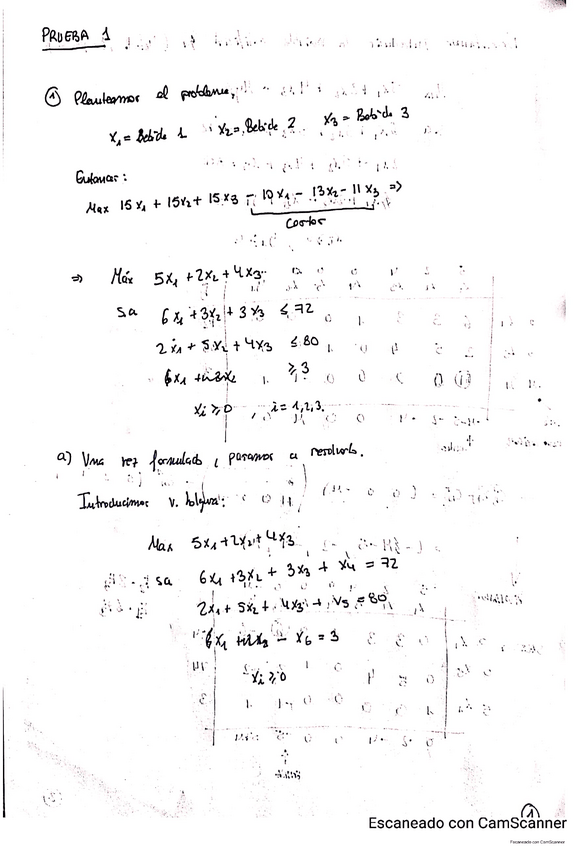 PRUEBA 1
① Planteamos el problema,
x₁ = Bebida 1 x₂ = Bebida 2 x₃ = Bebida 3
Max 15x₁ + 15x₂ + 15x₃ - 10x₁ - 13x₂ - 11x₃ ⇒
Costos
⇒ Máx 5x₁ + 2x₂ + 4x₃
sa 6x₁ + 3x₂ + 3x₃ ≤ 72
2x₁ + 5x₂ + 4x₃ ≤ 80
x₁ ≥ 3
xᵢ ≥ 0 , i = 1,2,3.
a) Una vez formulado, pasamos a resolverlo.
Introducimos v. holgura:
Max 5x₁ + 2x₂ + 4x₃
sa 6x₁ + 3x₂ + 3x₃ + x₄ = 72
2x₁ + 5x₂ + 4x₃ + x₅ = 80
x₁ - x₆ = 3
xᵢ ≥ 0
1
Escaneado con CamScanner
Escaneado con CamScanner